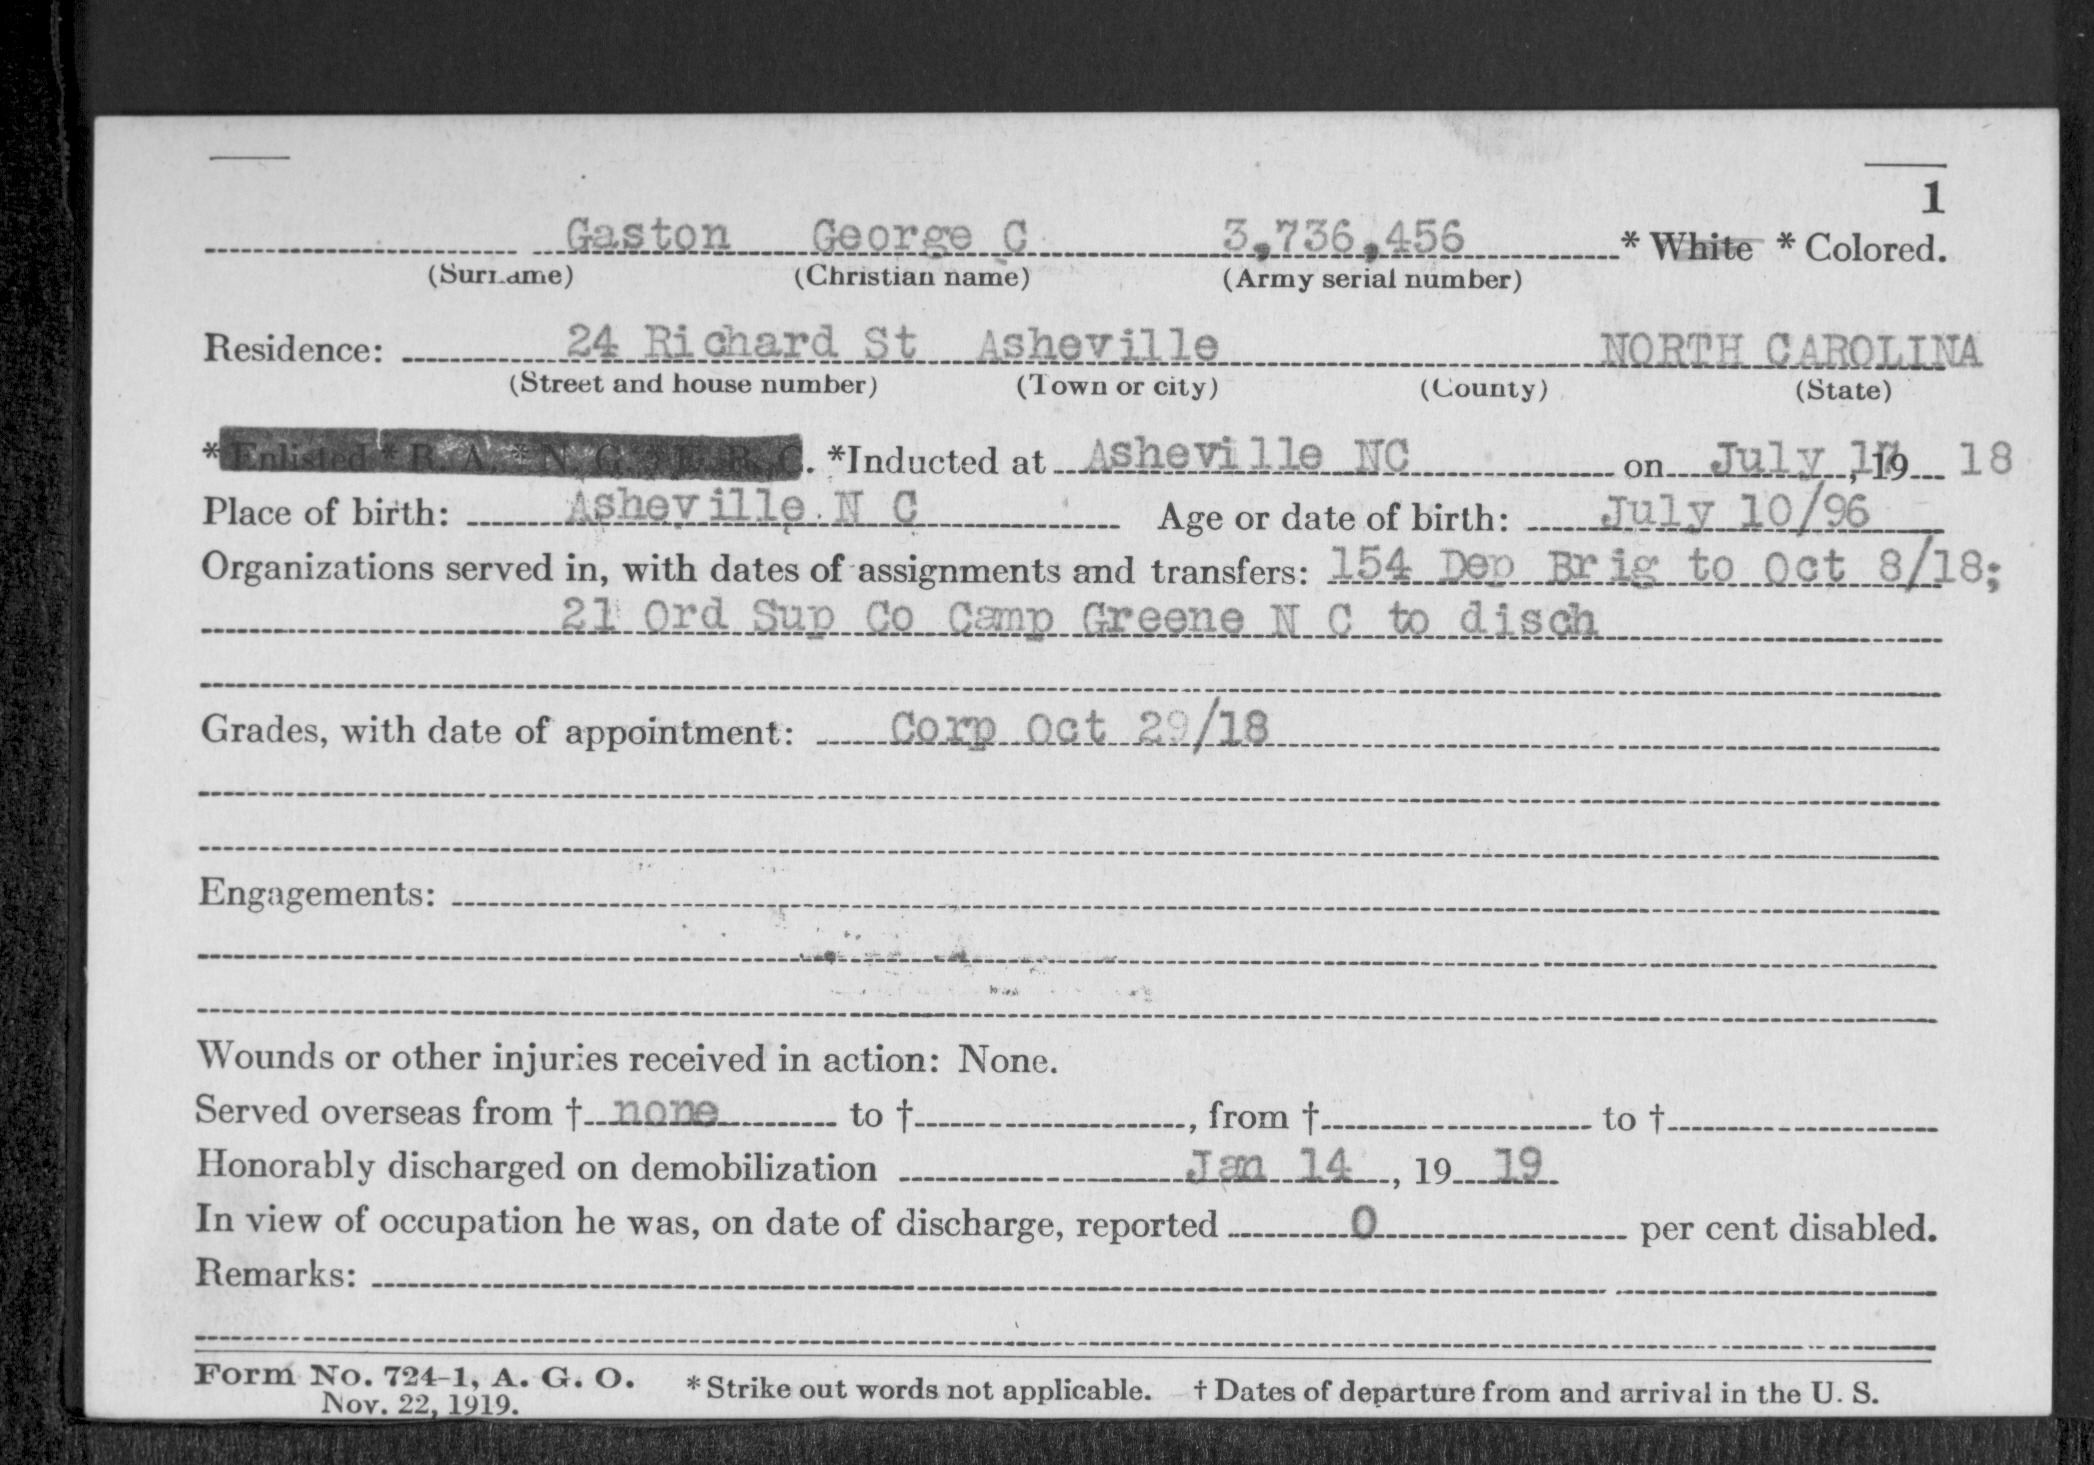 1
Gaston George C 3,736,456 * White * Colored.
(Surname) (Christian name) (Army serial number)
Residence: 24 Richard St Asheville NORTH CAROLINA
(Street and house number) (Town or city) (County) (State)
* Enlisted * R. A. * N. G. * E. R. C. *Inducted at Asheville NC on July , 19 18
Place of birth: Asheville N C Age or date of birth: July 10/96
Organizations served in, with dates of assignments and transfers: 154 Dep Brig to Oct 8/18;
21 Ord Sup Co Camp Greene N C to disch
Grades, with date of appointment: Corp Oct 29/18
Engagements:
Wounds or other injuries received in action: None.
Served overseas from † none to † , from † to †
Honorably discharged on demobilization Jan 14 , 19 19
In view of occupation he was, on date of discharge, reported 0 per cent disabled.
Remarks:
Form No. 724-1, A. G. O. * Strike out words not applicable. † Dates of departure from and arrival in the U. S.
Nov. 22, 1919.